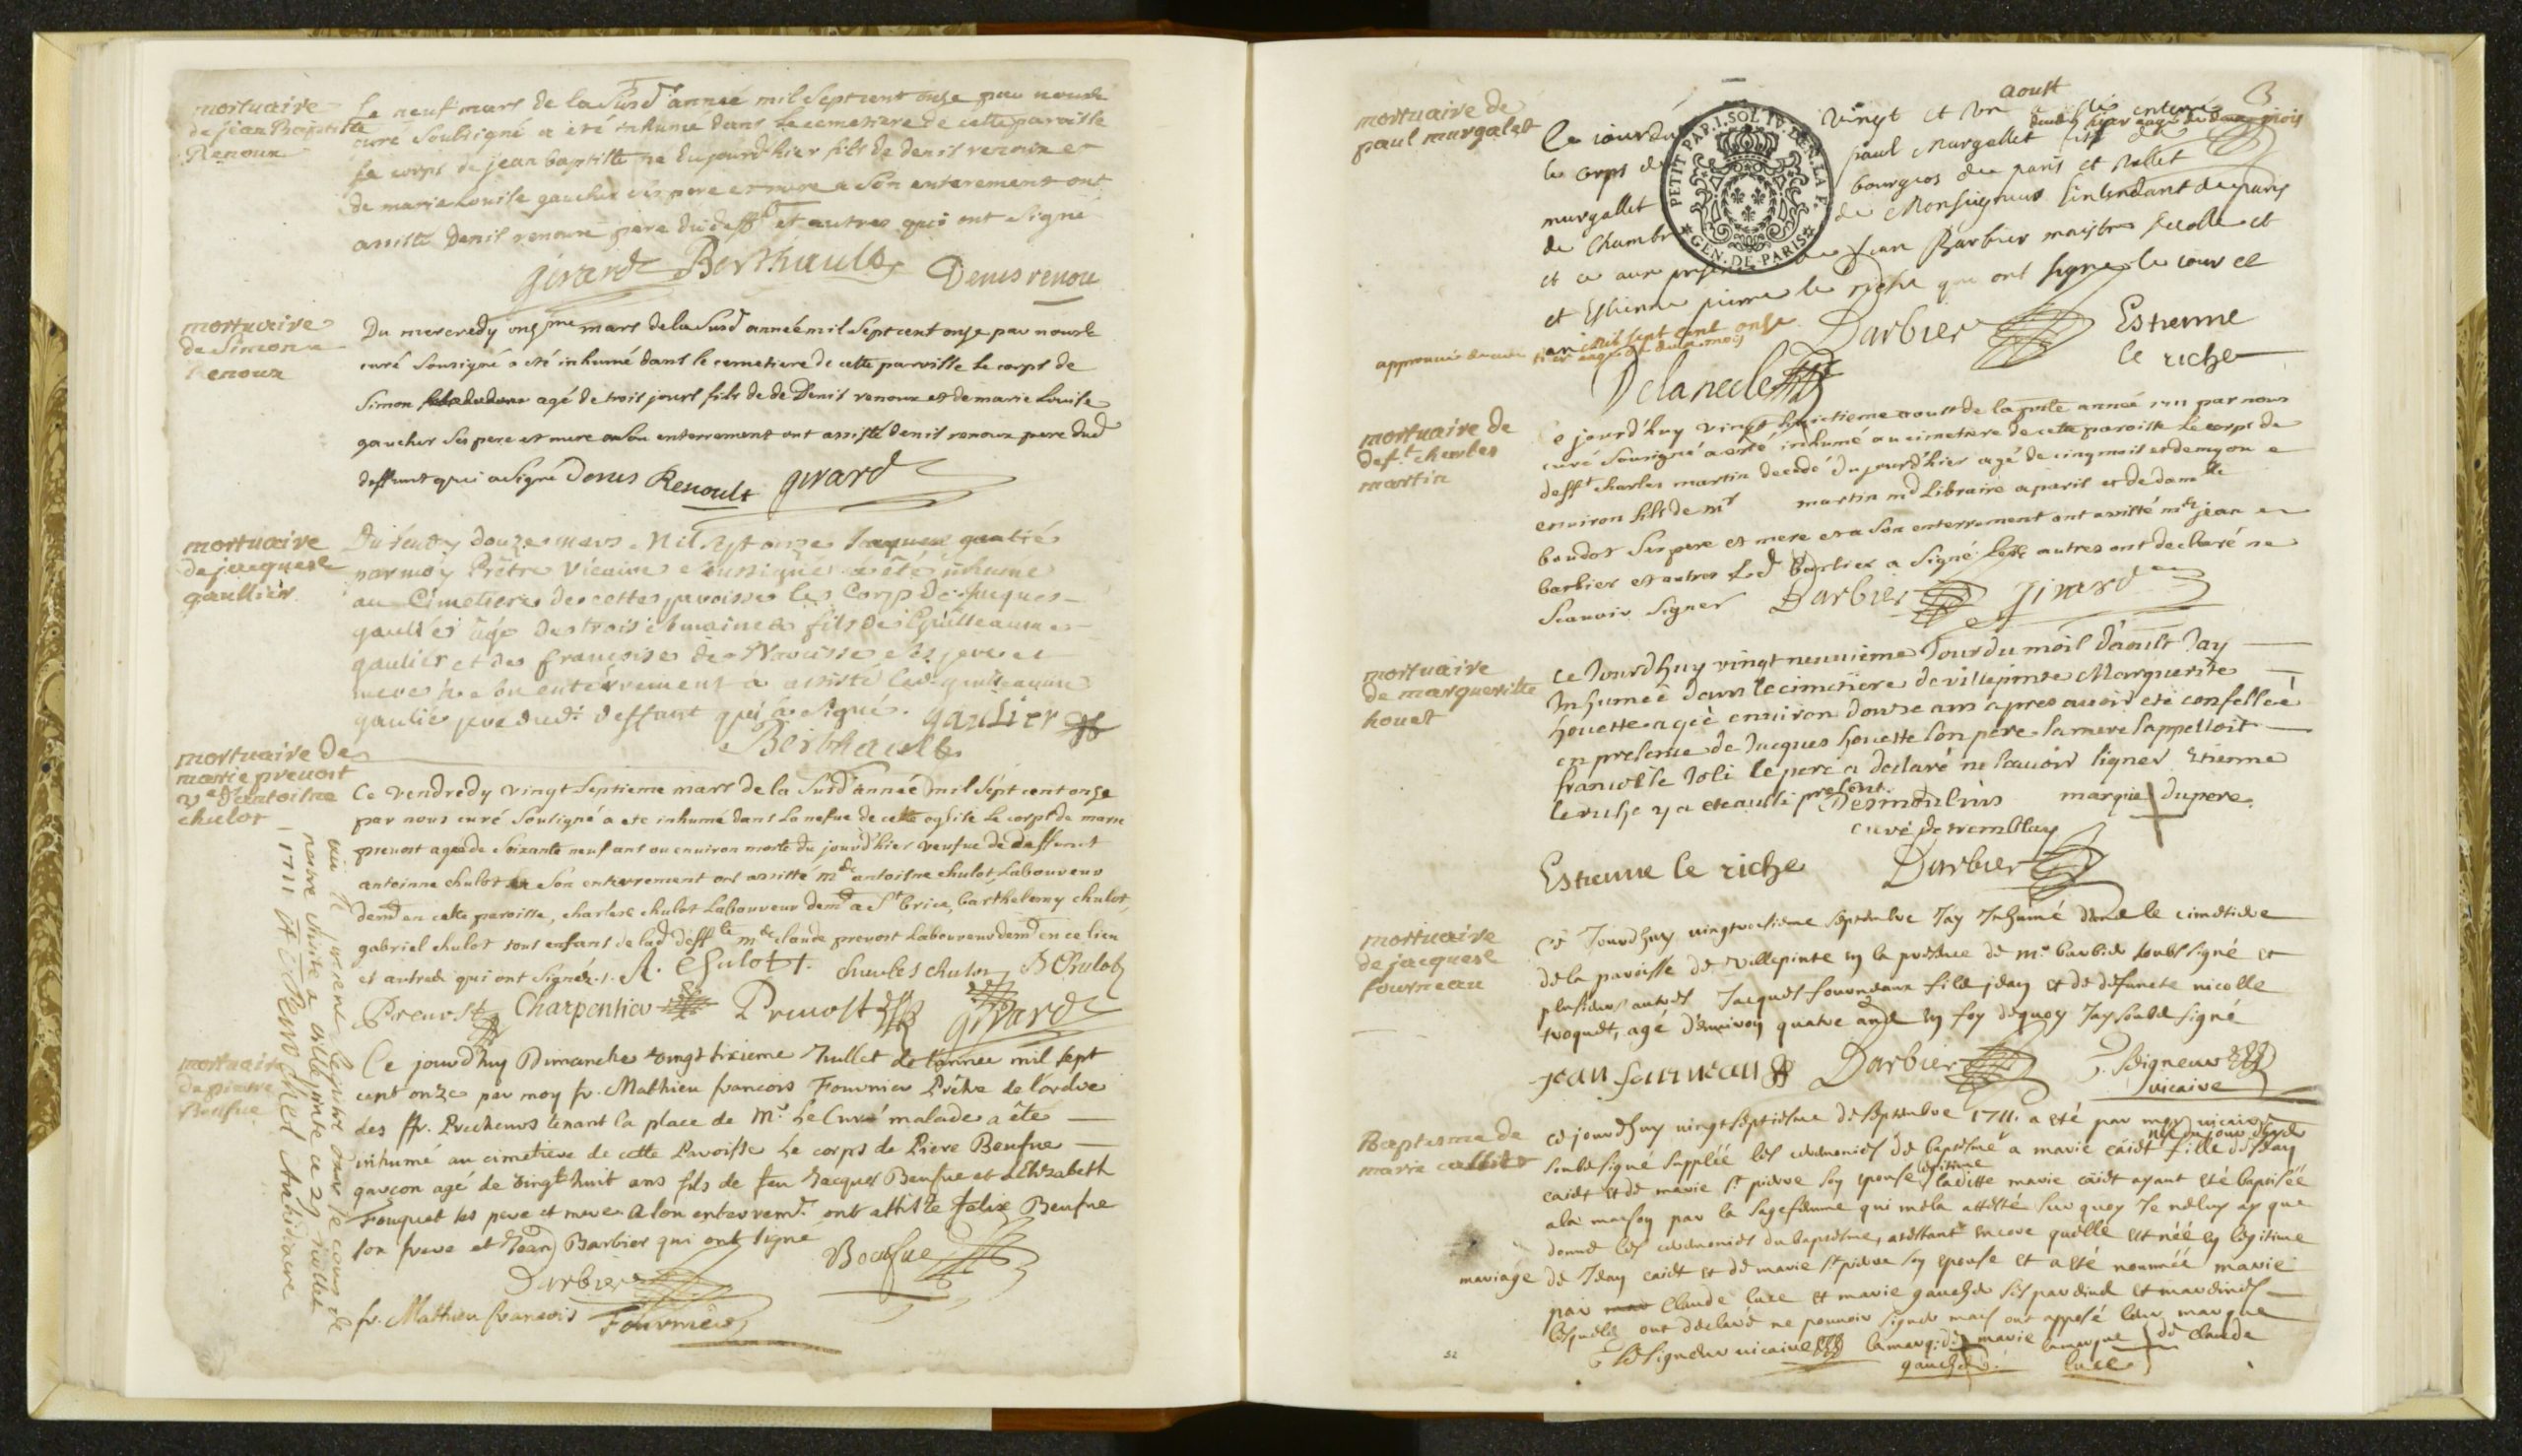 mortuaire
de jean Baptiste
Renoux
Le neuf mars de la Susd année mil Sept cent onze par nous
curé Soubsigné a eté inhumé dans le cemetiere de cette paroisse
le corps de jean baptiste ne du jourd'hier fils de denis renoux et
de marie Louise gaucher ses pere et mere a Son enterement ont
assisté Denis renoux pere du defft et autres qui ont Signé
girard Berthault Denis renou
mortuaire
de Simon
Renoux
Du mercredy onzme mars de la Susd année mil Sept cent onze par nous
curé Sousigné a eté inhumé dans le cemetiere de cette paroisse Le corps de
Simon agé de trois jours fils de de Denis renoux et de marie Louise
gaucher Ses pere et mere a Son enterrement ont assisté denis renoux pere dud
deffunt qui a Signé Denis Renoult girard
mortuaire
de jacques
gaultier
Du jeudy douze mars Mil Sept onze Jacques gautié
par moy Prêtre Vicaire Soussigné a été inhumé
au Cimetiere de cette paroisse le Corp de Jacques
gaultier âgé de trois semaines fils de Guilleaume
gautier et de françoise de Ses pere et
mere a Son enterrement a assisté led. guilleaume
gautié pere dudt deffunt qui a Signé. gautier
Berthault
mortuaire de
marie prevost
ve d'antoisne
chulot
Ce vendredy vingt Septieme mars de la Susd année mil Sept cent onze
par nous curé Sousigné a ete inhumé dans La nefue de cette eglise Le corps de marie
prevost agée de Soixante neuf ans ou environ morte du jourd'hier veufue de deffunct
antoinne chulot a Son enterrement ont assisté antoisne chulot, Laboureur
demt en cette paroisse, charles chulot Laboureur demt a St brice, barthelemy chulot,
gabriel chulot tous enfans de lad deffte claude prevost Laboureur demt en ce lieu
et autres qui ont Signés. A. Chulot. charles chulot B Chulot
Prevost Charpentier Prevost girard
vû le present Registre dans le cours de
notre visite a villepinte ce 29 juillet
1711
mortuaire
de pierre
Beufue
Ce jourd'huy Dimanche vingt sixieme Juillet de l'année mil sept
cent onze par moy fr. Mathieu francois Fournier Prêtre de l'ordre
des ff. Precheurs tenant la place de Mr. Le Curé malade a été
inhumé au cimetiere de cette Paroisse Le corps de Piere Beufue
garçon agé de vingt huit ans fils de feu Jacques Beufue et d'Elizabeth
Fouquet ses pere et mere. A son enterremt. ont assisté felix Beufue
son frere et Jean Barbier qui ont signe
Barbier Boeufue
fr. Mathieu francois Fournier
3
mortuaire de
paul murgalet
Ce iourdu vingt et un aoust a esté enterré
le corps de paul Murgallet fils de
murgallet bourgeos de paris et vallet
de Chambr de Monseigneur l'intendant de paris
et ce aux Jean Barbier maistre d'ecolle et
et Estienne pierre le riche qui ont signe le iour et
an Mil sept cent onze
Barbier Estienne
le riche
Delanecle
mortuaire de
deft. charles
martin
Ce jourd'huy vingt huictieme aoust de la pnte année 1711 par nous
curé Sousigné a esté inhumé au cimetiere de cette paroisse Le corps de
defft charles martin decedé du jourd'hier agé de cinq mois et demy ou
environ fils de mr martin md Libraire a paris et de damlle
boudot Ses pere et mere et a Son enterrement ont assisté jean
barbier et autres Led Barbier a Signé Les autres ont declaré ne
Scavoir Signer Barbier Girard
mortuaire
de marguerite
houet
Ce Jourdhuy vingt neuuieme Jour du mois d'aoust Jay
Inhumeé dans le cimetiere de villepinte Marguerite
houette ageé enuiron douze ans apres auoir eté confesseé
en presence de Jacques houette son pere. sa mere sappelloit
francoise Joli le pere a declaré ne scauoir signer Etienne
le riche y a ete aussi present. Desmoulins marque du pere.
curé de tremblay
Estienne le riche Barbier
mortuaire
de jacques
fourneau
Ce Jourdhuy uingtroisieme septembre Jay Inhumé dans le cimetiere
de la paroisse de Villepinte en la presence de mr. barbier soubsigné et
plusieurs autres Jacques fourneaux fils de jean et de defuncte nicolle
troquet, agé d'enuiron quatre ans en foy de quoy Jay soubsigné
jean fourneau Barbier Seigneur
uicaire
Baptesme de
marie
Ce jourdhuy uingtseptiesme de septembre 1711. a eté par moy uicaire
soubsigné suppléé les ceremonies de baptesme a marie caidt fille de Jean
caidt et de marie St. pierre son epouse legitime laditte marie caidt ayant eté baptisée
a la maison par la sagefemme qui me la attesté sur quoy Je ne luy ay que
donné les ceremonies du baptesme, attestant encore quelle est néé en legitime
mariage de Jean caidt et de marie St pierre son epouse et a eté nommée marie
par Claude luce et marie gaucher ses pardin et mardines
lesquels ont declaré ne pouuoir signer mais ont apposé leur marque
Seigneur uicaire la marq: de marie la marque de Claude
gaucher. luce
PETIT PAP. I. SOL IV. DEN. LA F.
GEN. DE PARIS